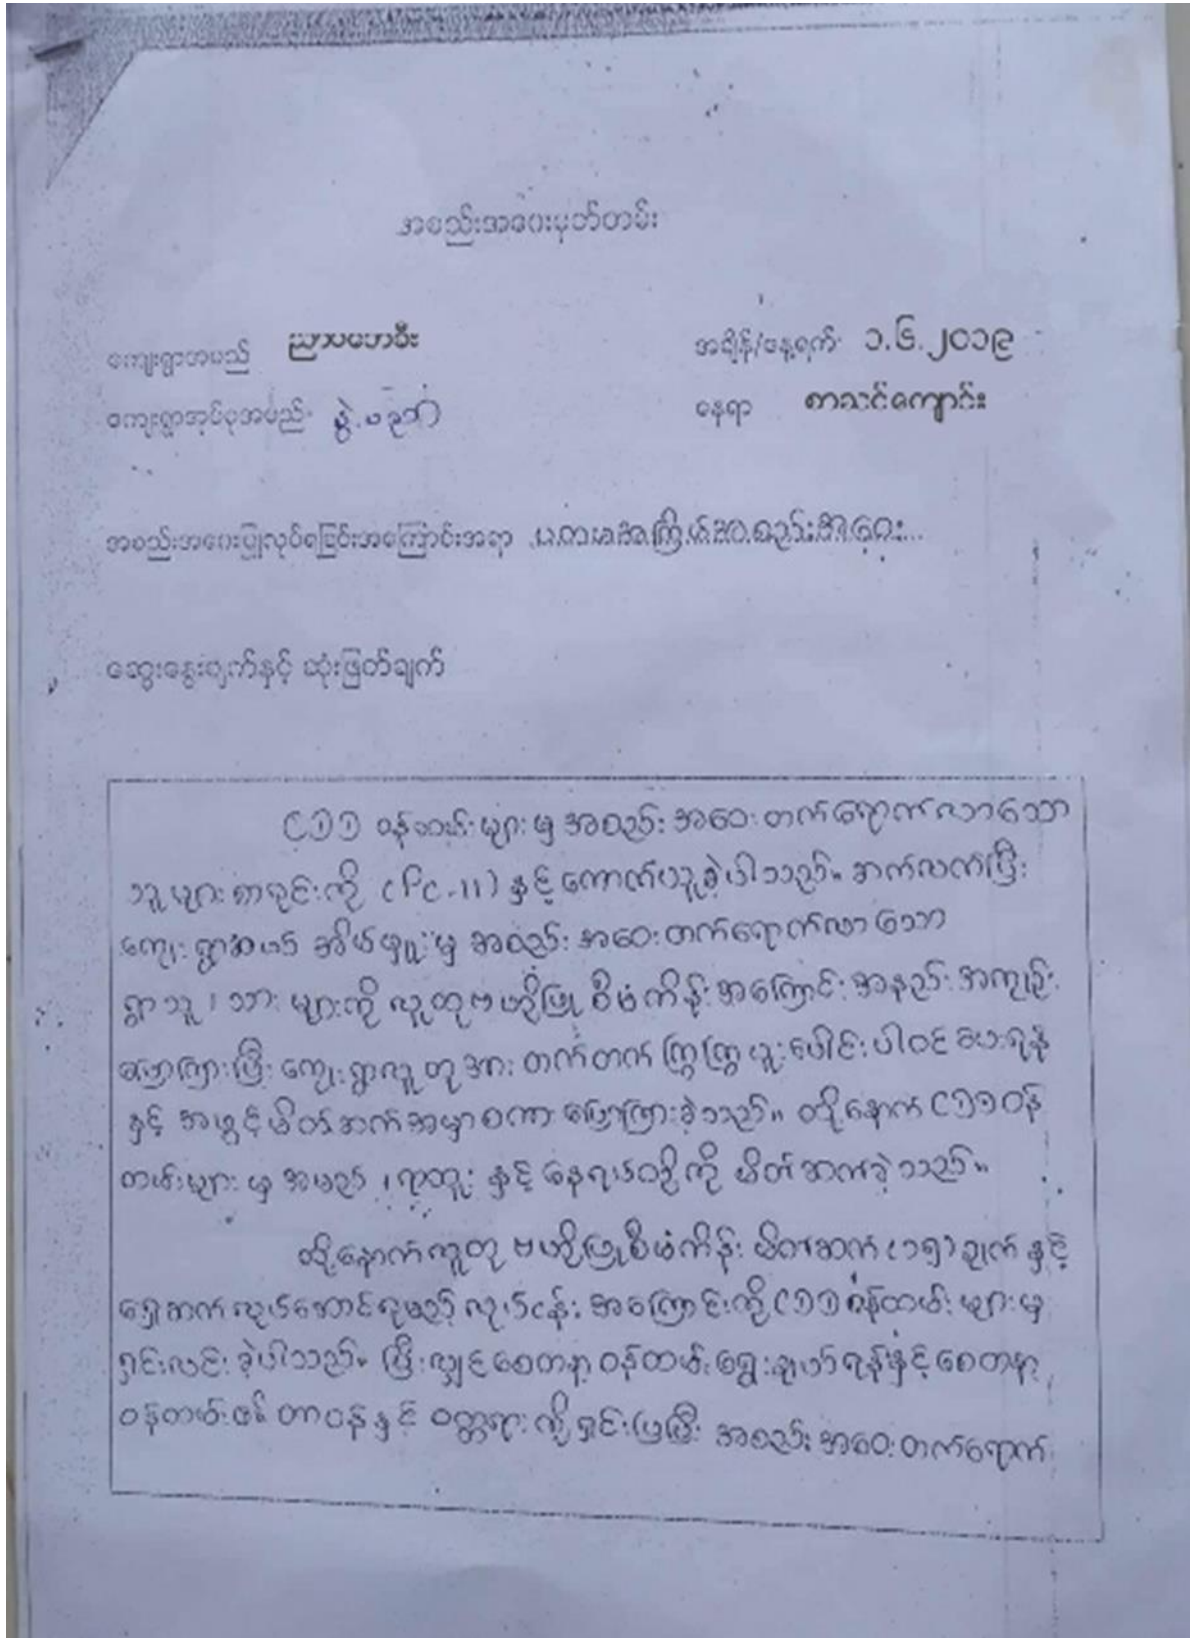 အစည်းအဝေးမှတ်တမ်း
ကျေးရွာအမည် အချိန်/နေ့ရက် ၁.၆.၂၀၁၉
ကျေးရွာအုပ်စုအမည် နေရာ စာသင်ကျောင်း
အစည်းအဝေးပြုလုပ်ရခြင်းအကြောင်းအရာ ပ.က.မ.အကြိမ်အစည်းအဝေး
ဆွေးနွေးချက်နှင့် ဆုံးဖြတ်ချက်
CDD ဝန်ထမ်းများမှ အစည်းအဝေးတက်ရောက်လာသော
သူများစာရင်းကို (PC-11) နှင့်ကောက်ယူခဲ့ပါသည်။ ဆက်လက်ပြီး
ကျေးရွာအုပ်ချုပ်မှူးမှ အစည်းအဝေးတက်ရောက်လာသော
ရွာသူ၊သားများကို လူထုဗဟိုပြုစီမံကိန်းအကြောင်းအနည်းအကျဉ်း
ပြောကြားပြီး ကျေးရွာလူထုအား တက်တက်ကြွကြွပူးပေါင်းပါဝင်ပေးရန်
နှင့် အဖွင့်မိတ်ဆက်အမှာစကားပြောကြားခဲ့သည်။ ထို့နောက် CDD ဝန်
ထမ်းများမှ အမည်၊ရာထူးနှင့် နေရပ်တို့ကို မိတ်ဆက်ခဲ့သည်။
ထို့နောက် လူထုဗဟိုပြုစီမံကိန်း မိတ်ဆက်(၁၅)ချက်နှင့်
ရှေ့ဆက်လုပ်ဆောင်ရမည့် လုပ်ငန်းအကြောင်းကို CDD ဝန်ထမ်းများမှ
ရှင်းလင်းခဲ့ပါသည်။ ပြီးလျှင် စေတနာ့ဝန်ထမ်းရွေးချယ်ရန်နှင့် စေတနာ့
ဝန်ထမ်း၏ တာဝန်နှင့် ဝတ္တရားကို ရှင်းပြပြီး အစည်းအဝေးတက်ရောက်